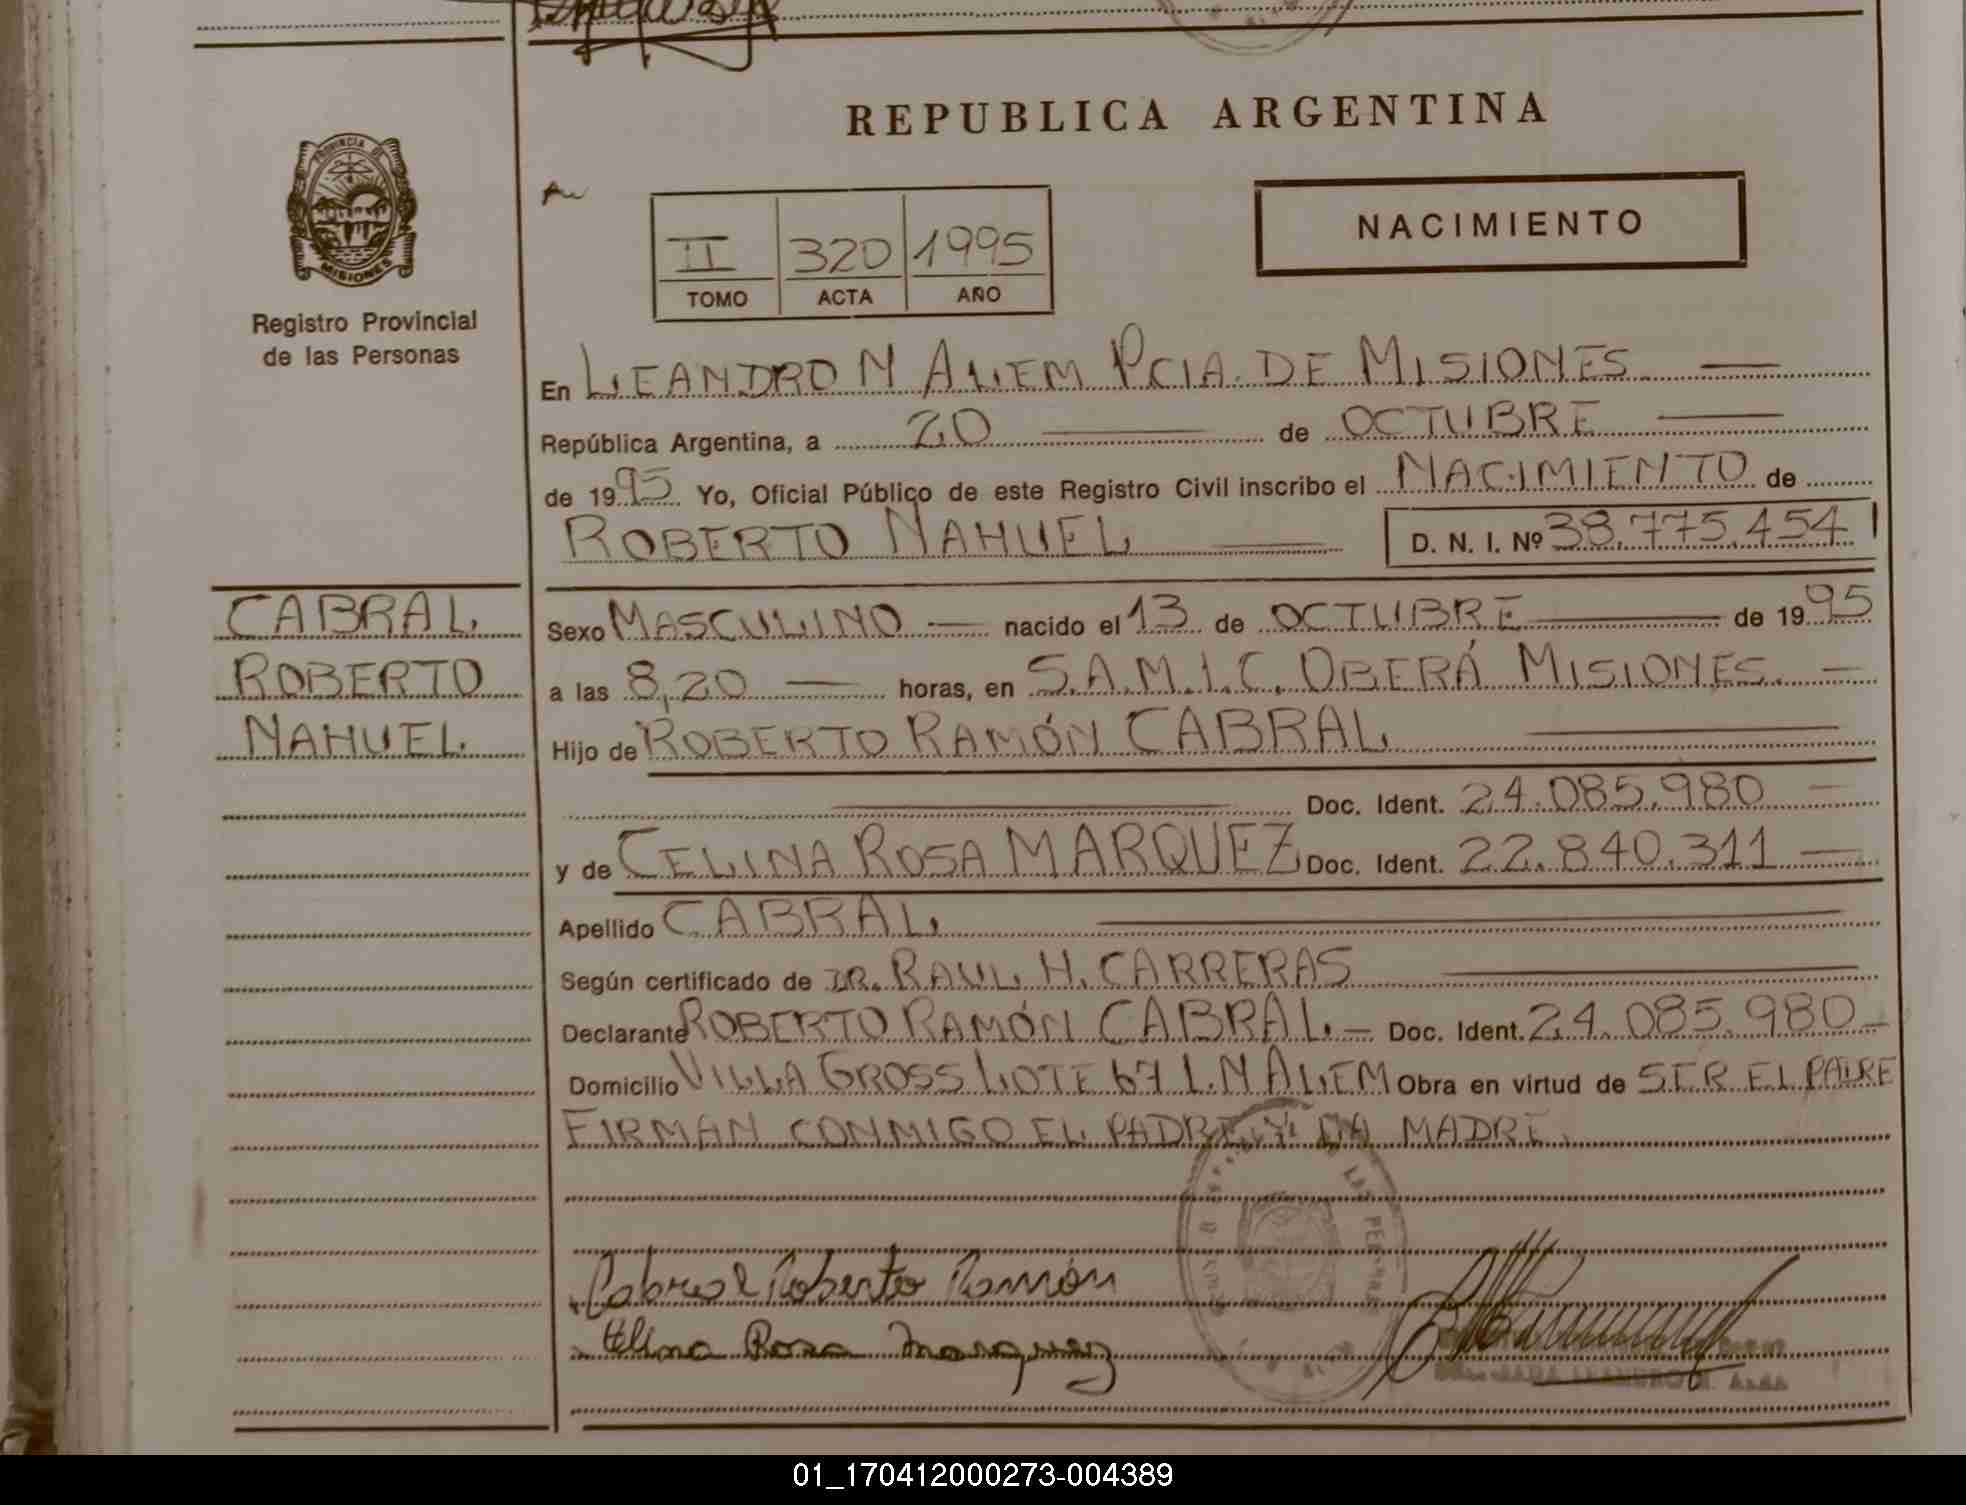 REPUBLICA ARGENTINA
PROVINCIA DE
MISIONES
Registro Provincial
de las Personas
NACIMIENTO
II 320 1995
TOMO ACTA AÑO
En LEANDRO N ALEM PCIA. DE MISIONES
República Argentina, a 20 de OCTUBRE
de 1995 Yo, Oficial Público de este Registro Civil inscribo el NACIMIENTO de
ROBERTO NAHUEL D. N. I. Nº 38.775.454
CABRAL
ROBERTO
NAHUEL
Sexo MASCULINO nacido el 13 de OCTUBRE de 1995
a las 8,20 horas, en S.A.M.I.C. OBERÁ MISIONES.
Hijo de ROBERTO RAMÓN CABRAL
Doc. Ident. 24.085.980
y de CELINA ROSA MARQUEZ Doc. Ident. 22.840.311
Apellido CABRAL
Según certificado de DR. RAUL H. CARRERAS
Declarante ROBERTO RAMÓN CABRAL. Doc. Ident. 24.085.980
Domicilio VILLA GROSS LOTE 67 L.N ALEM Obra en virtud de SER EL PADRE
FIRMAN CONMIGO EL PADRE Y LA MADRE.
Cabral Roberto Ramón
Celina Rosa Marquez
01_170412000273-004389